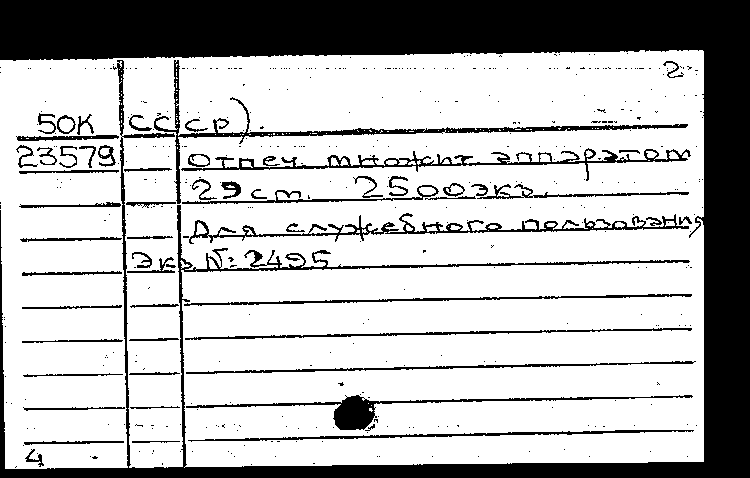 2
50К СССР).
23579 Отпеч. множит. аппаратом
29 см. 2500 экз.
Для служебного пользования
Экз. №: 2495.
4